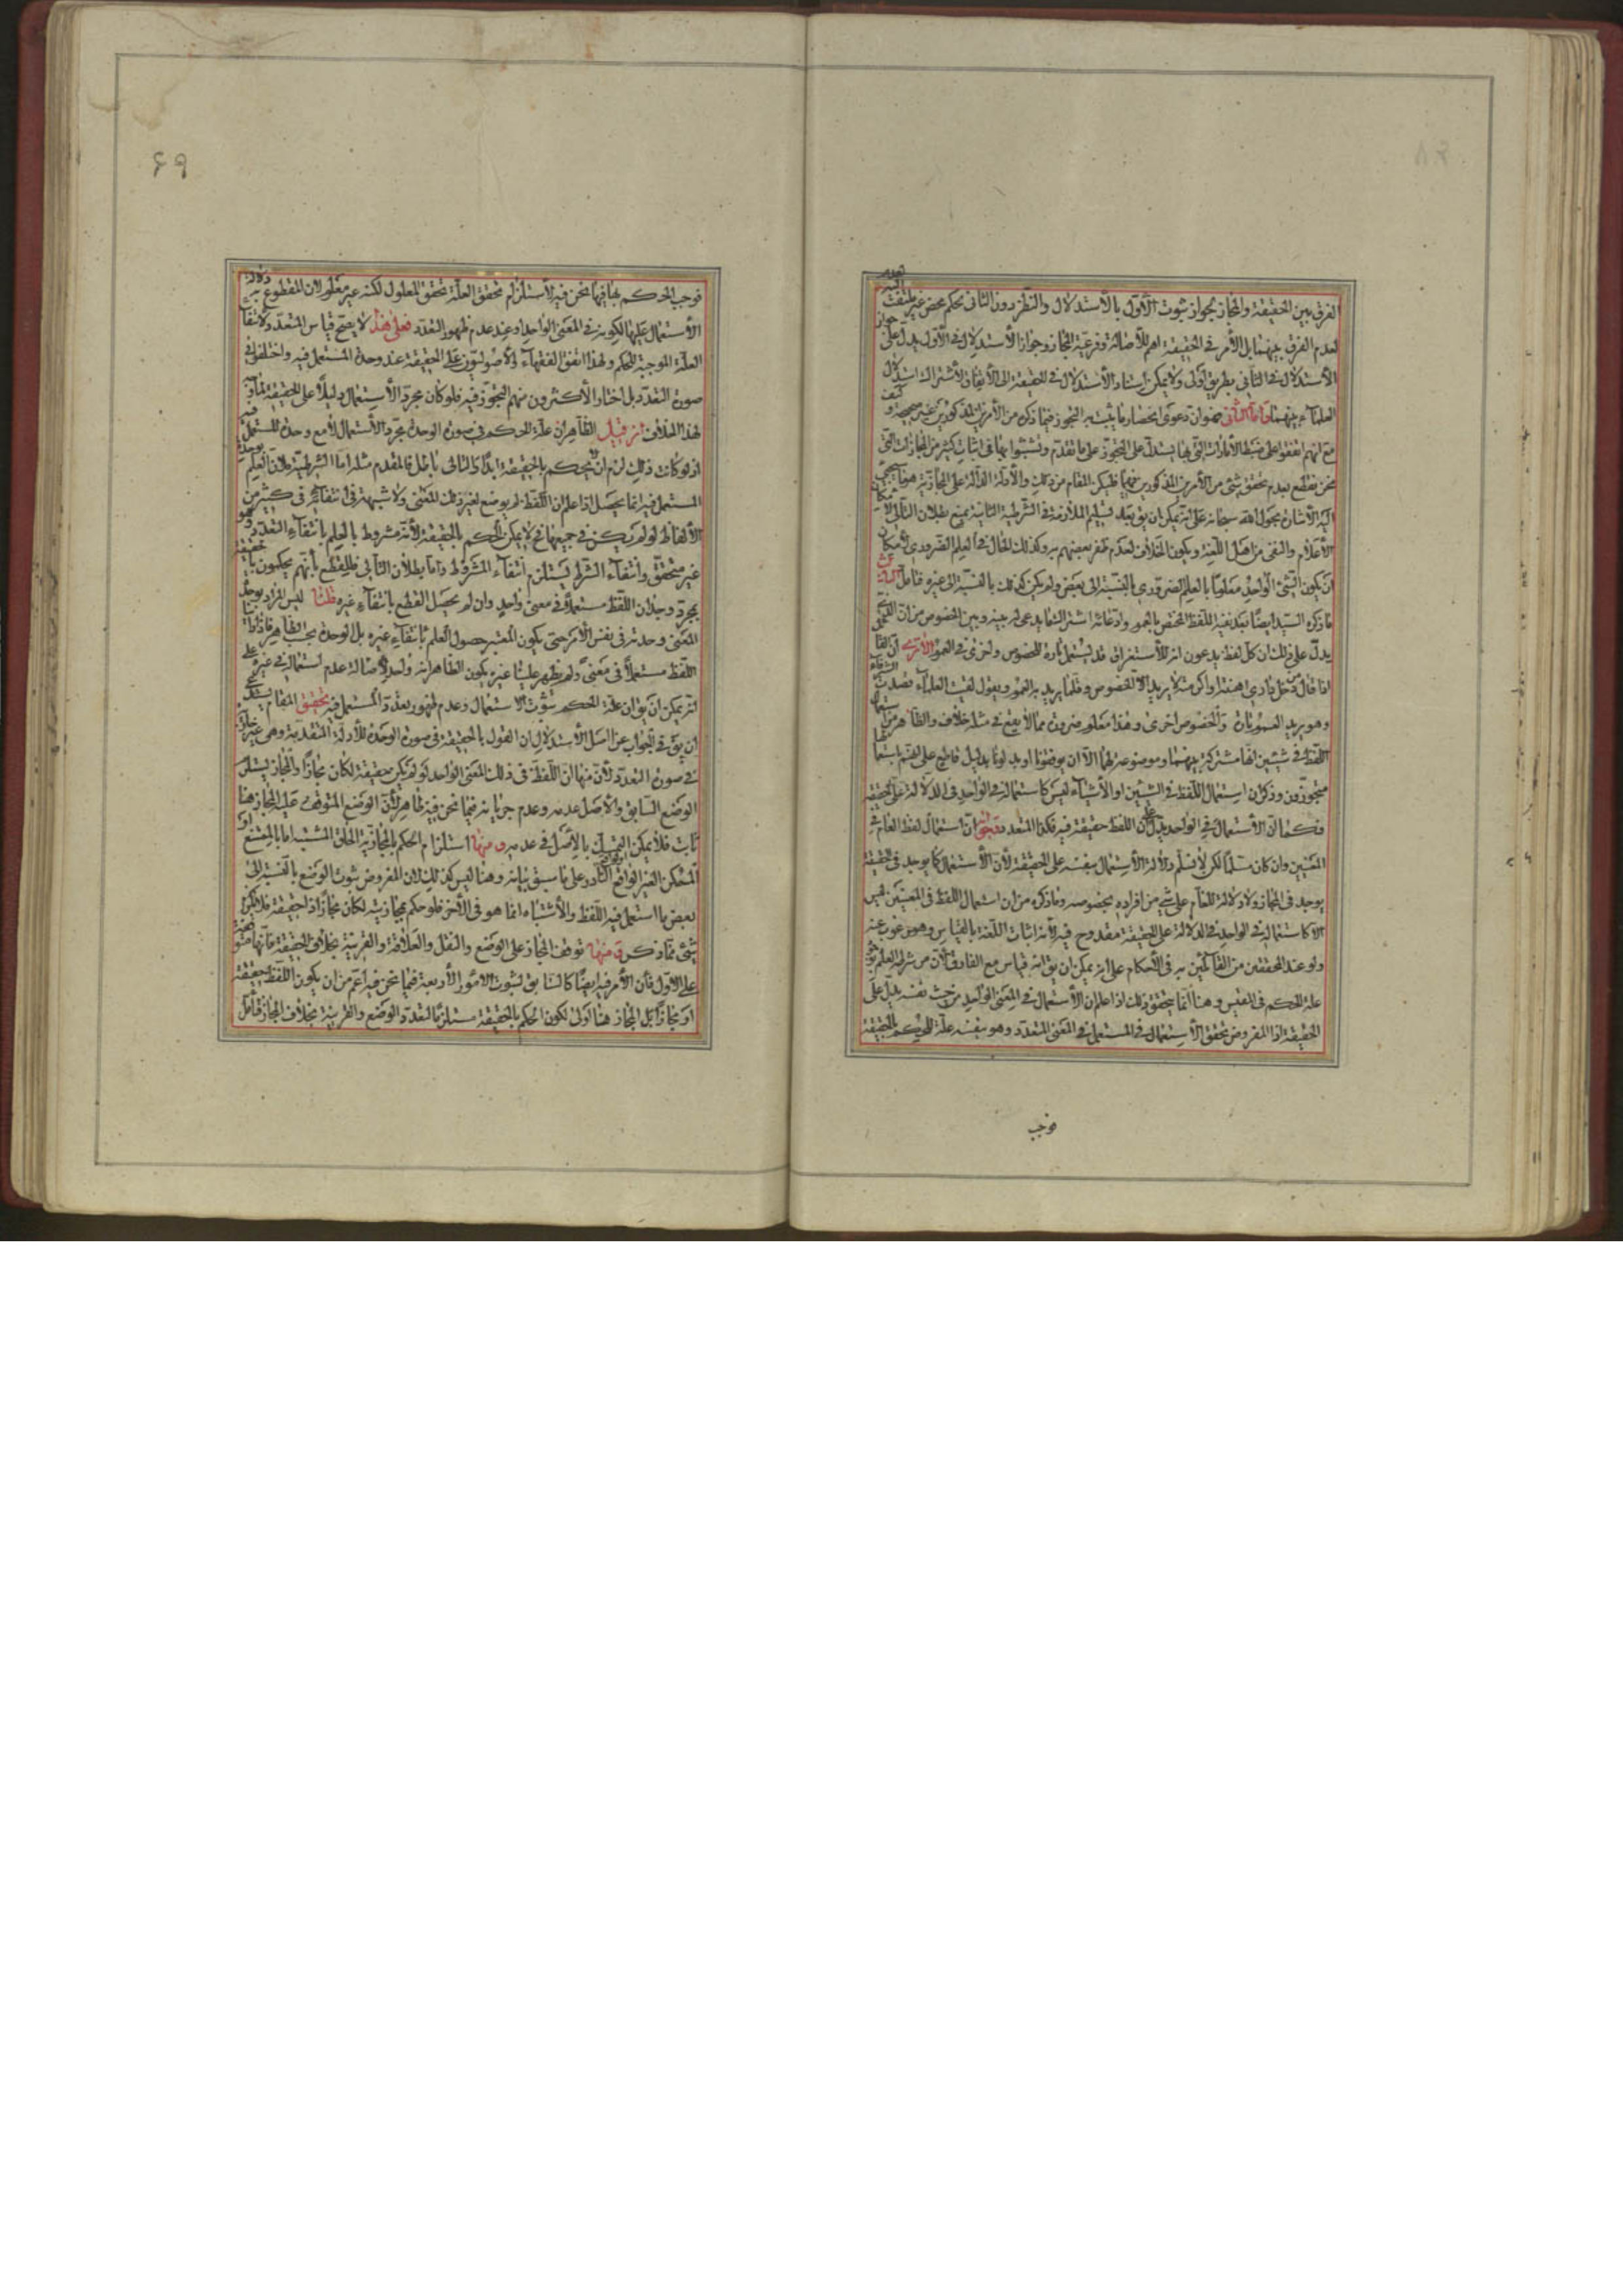 الفرق بين الحقيقة والمجاز بجواز ثبوت الأول بالأستدلال والنظر دون الثانى تحكم محض غير ملتفت اليه
لعدم الفرق بينهما بل الأمر فى الحقيقة اهم للأصالة وفرعية المجاز وجواز الأستدلال فى الأول يدل على جواز
الأستدلال فى الثانى بطريق اولى ولا يمكن اسناد الأستدلال فى الحقيقة الى الأتفاق لأشتراك استدلال
العلماء بينهما واما الثانى فهو ان دعوى انحصار ما يثبت به التجوز فيما ذكره من الأمرين المذكورين غير صحيحة و كيف
مع انهم اتفقوا على ضبط الأمارات التى بها يستدل على التجوز على ما تقدم وتشبثوا بها فى اثبات كثير من المجازات التى
نحن نقطع بعدم تحقق شئ من الأمرين المذكورين فيها فليكن المقام من ذلك والأدلة الدالة على المجازية هو ما سيجئ
اليه الأشارة بحول الله سبحانه على انه يمكن ان يق بعد تسليم الملازمة فى الشرطية الثانية بمنع بطلان التالى
الأعلام والنفى من اهل اللغة ويكون الخلاف لعدم ظفر بعضهم به وكذلك الحال فى العلم الضرورى لأمكان
ان يكون الشئ الواحد معلوما بالعلم الضرورى بالنسبة الى بعض ولم يكن كذلك بالنسبة الى غيره فتأمل الثالث
ما ذكره السيد ايضا بعد نفيه اللفظ المختص بالعموم وادعائه اشتراك ما يدعى له بينه وبين الخصوص من ان الذى
يدل على ذلك ان كل لفظ يدعون انه للأستغراق قد يستعمل تارة للخصوص واخرى فى العموم الا ترى ان القائل
اذا قال من دخل دارى اهنته او اكرمته لا يريد الا الخصوص وقلما يريد به العموم ويقول لقيت العلماء وقصدت الشرفاء
وهو يريد العموم تارة والخصوص اخرى وهذا معلوم ضرورة مما لا يقع فى مثله خلاف والظاهر من استعمال
اللفظ فى شيئين انها مشتركة بينهما وموضوعة لهما الا ان يوقفونا او يدلونا بدليل قاطع على انهم باستعمالها
متجوزون وذكر ان استعمال اللفظ فى الشيئين او الأشياء ليس كاستعماله فى الواحد فى الدلالة على الحقيقة
فكما ان الأستعمال فى الواحد يدل على ان اللفظ حقيقة فيه فكذا المتعدد وجوابه ان استعمال لفظ العام فى
المعنيين وان كان مسلما لكن لا نسلم دلالة الأستعمال بنفسه على الحقيقة لأن الأستعمال كما يوجد فى الحقيقة
يوجد فى المجاز ولا دلالة للعام على شئ من افراده بخصوصه وما ذكره من ان استعمال اللفظ فى المعنيين ليس
الا كاستعماله فى الواحد فى الدلالة على الحقيقة مقدوح فيه لأنه اثبات اللغة بالقياس وهو مرغوب عنه
ولو عند المحققين من القائلين به فى الأحكام على انه يمكن ان يق انه قياس مع الفارق لأن من شرطه العلم بثبوت
علة الحكم فى المقيس وهنا انما يتحقق ذلك اذا علم ان الأستعمال فى المعنى الواحد من حيث نفسه يدل على
الحقيقة اذ المفروض تحقق الأستعمال فى المستعمل فى المعنى المتعدد وهو بنفسه علة للحكم بالحقيقة
فوجب
٤٩
فوجب الحكم بها فيما نحن فيه لأستلزام تحقق العلة تحقق المعلول لكنه غير معلوم لأن المقطوع به دلالة
الأستعمال عليها لكونه فى المعنى الواحد او عند عدم ظهور التعدد فعلى هذا لا يصح قياس المتعدد لأنتفاء
العلة الموجبة للحكم ولهذا اتفق الفقهاء والأصوليون على الحقيقة عند وحدة المستعمل فيه واختلفوا فى
صورة التعدد بل اختار الأكثرون منهم التجوز فيه فلو كان مجرد الأستعمال دليلا على الحقيقة لما وقع
لهذا الخلاف ان قيل الظاهر ان علة الحكم فى صورة الوحدة مجرد الأستعمال لا مع وحدة المستعمل فيه
اذ لو كانت ذلك لزم ان لا يحكم بالحقيقة ابدا والتالى باطل فالمقدم مثله اما الشرطية فلأن العلم بوحدة
المستعمل فيه انما يحصل اذا علم ان اللفظ لم يوضع لغير ذلك المعنى ولا شبهة فى انتفائه فى كثير من
الألفاظ لو لم يكن فى جميعها فح لا يمكن الحكم بالحقيقة لأنه مشروط بالعلم بانتفاء التعدد وهو
غير متحقق وانتفاء الشرط يستلزم انتفاء المشروط واما بطلان التالى فللقطع بأنهم يحكمون بالحقيقة
بمجرد وجدان اللفظ مستعملا فى معنى واحد وان لم يحصل القطع بانتفاء غيره قلنا ليس المراد بوحدة
المعنى وحدته فى نفس الأمر حتى يكون المعتبر حصول العلم بانتفاء غيره بل الوحدة بحسب الظاهر فاذا رأينا
اللفظ مستعملا فى معنى ولم يظهر علينا غيره يكون الظاهر انه واحد لأصالة عدم استعماله فى غيره على
انه يمكن ان يق ان علة الحكم ثبوت الأستعمال وعدم ظهور تعدد المستعمل فيه تحقيق المقام يستدعى
ان يق فى الجواب عن اصل الأستدلال ان القول بالحقيقة فى صورة الوحدة للأدلة المتقدمة وهى غير جارية
فى صورة التعدد لأن منها ان اللفظ فى ذلك المعنى الواحد لو لم يكن حقيقة لكان مجازا والمجاز يستلزم
الوضع السابق والأصل عدمه وعدم جريانه فيما نحن فيه ظاهر لأن الوضع المتوقف عليه المجاز هنا
ثابت فلا يمكن التمسك بالأصل فى عدمه ومنها استلزام الحكم بالمجازية الحاق المشتبه اما بالممتنع او
الممكن الغير الواقع او الواقع النادر على ما سبق بيانه وهنا ليس كذلك لأن المفروض ثبوت الوضع بالنسبة الى
بعض ما استعمل فيه اللفظ والأشتباه انما هو فى الأخر فلو حكم بمجازيته لكان مجازا ذا حقيقة فلا يلزم
شئ مما ذكر ومنها توقف المجاز على الوضع والنقل والعلاقة والقرينة بخلاف الحقيقة فانها متوقفة
على الأول فأن الأمر فيه ايضا كالسابق لثبوت الأمور الأربعة فيما نحن فيه اعم من ان يكون اللفظ حقيقة
او مجازا بل المجاز هنا اولى لكون الحكم بالحقيقة مستلزما لتعدد الوضع والقرينة بخلاف المجاز فتأمل